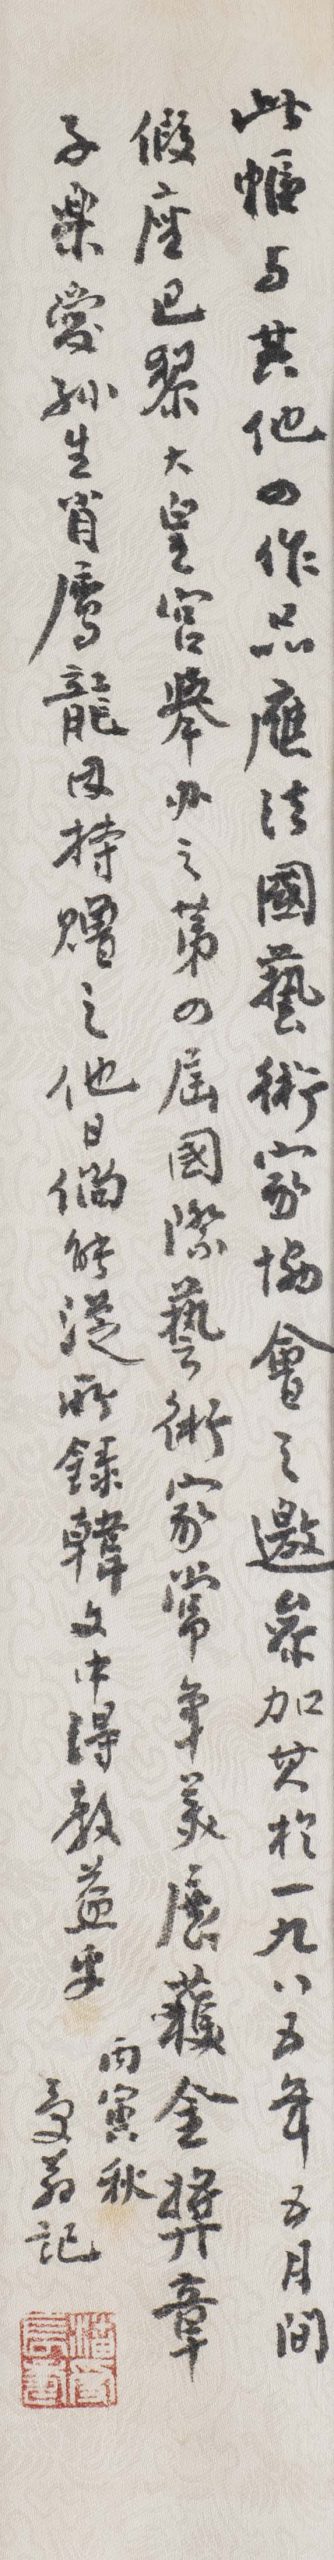 此幅与其他四作品應法國藝術家協會之邀參加其於一九八五年五月間
假座巴黎大皇宮舉办之第四屆國際藝術家常年美展獲金獎章
子樂愛孫生肖屬龍因持贈之他日倘能從所錄韓文中得教益乎
丙寅秋
受翁記